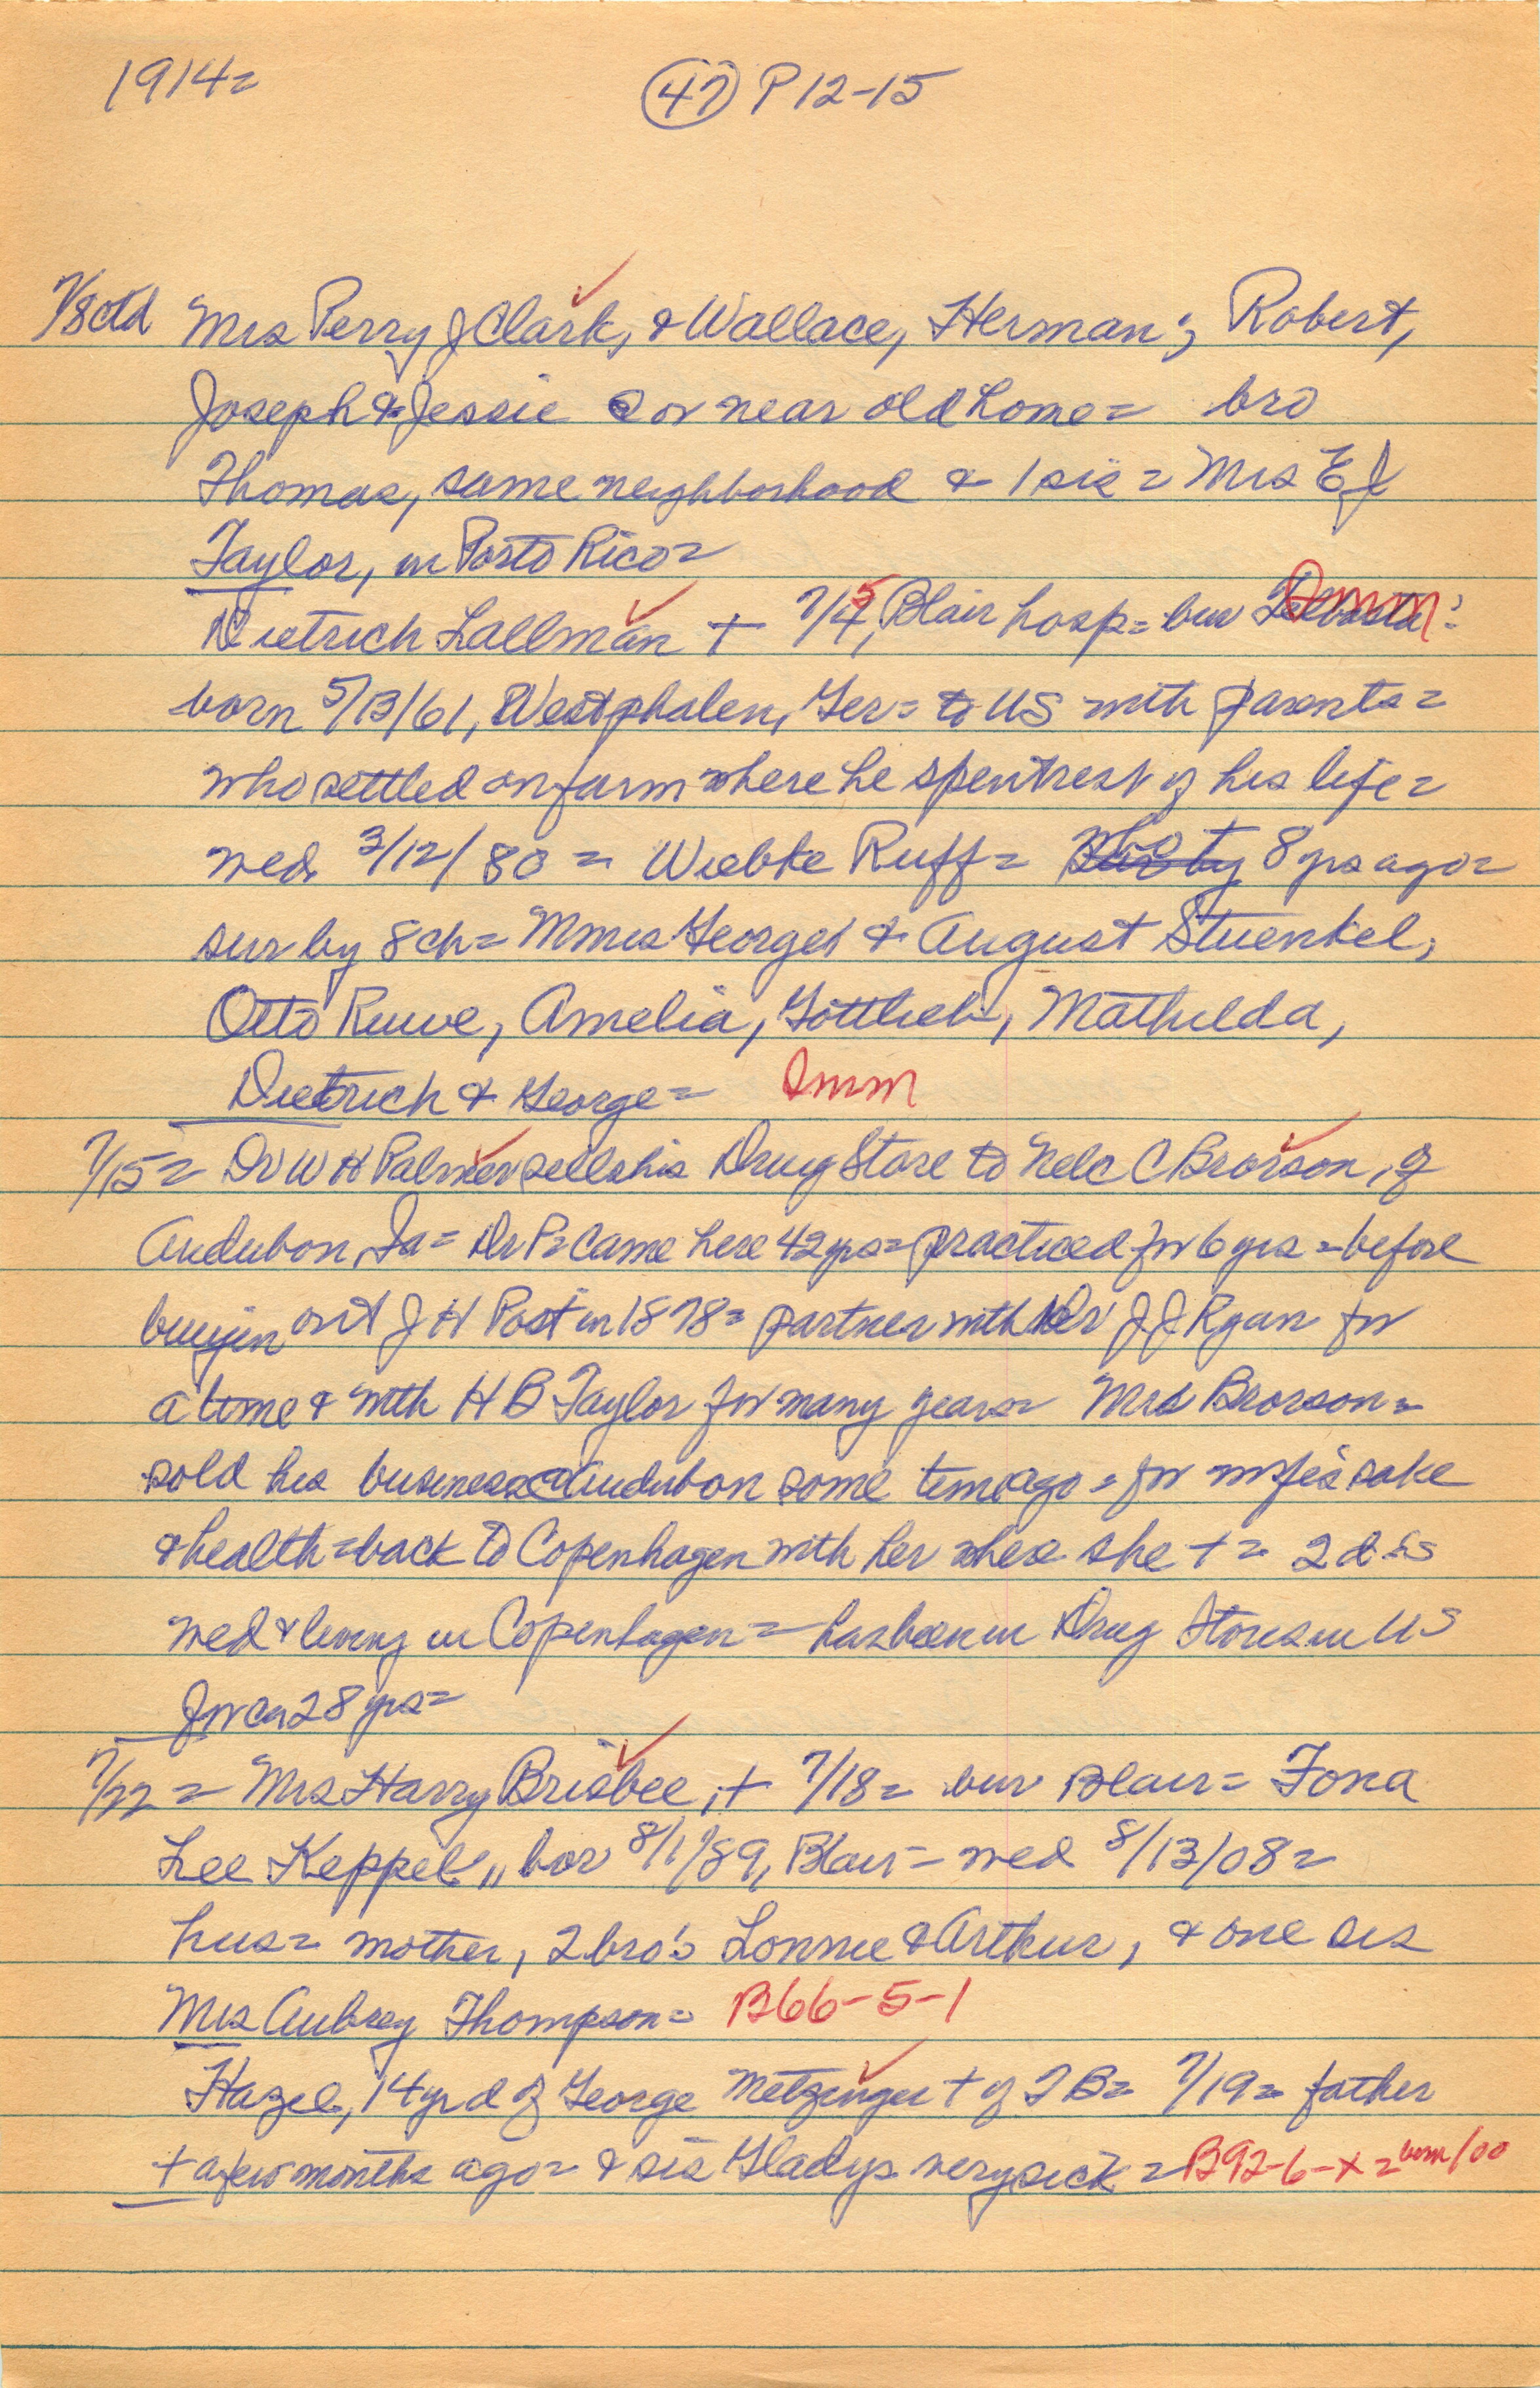 1914=
(47) P 12-15
7/8 ctd Mrs Perry J Clark, & Wallace, Herman; Robert,
Joseph & Jessie @ or near old home = bro
Thomas, same neighborhood & 1 sis = Mrs E J
Taylor, in Porto Rico =
Dietrich Lallman + 7/5, Blair hosp = bur Imm :
born 5/13/61, Westphalen, Ger = to US with parents =
who settled on farm where he spent rest of his life =
wed 3/12/80 = Wiebke Ruff = who + 8 yrs ago =
sur by 8 ch = Mmes George & August Stuenkel,
Otto Ruwe, Amelia, Gottlieb, Mathilda,
Dietrich & George = Imm
7/15 = Dr W H Palmer sells his Drug Store to Nels C Brorson, of
Audubon, Ia = Dr P = came here 42 yrs = practiced for 6 yrs = before
buyin out J H Post in 1878 = partner with Dr J J Ryan for
a time & with H B Taylor for many years = Mrs Brorson =
sold his business @ Audubon some time ago = for wife's sake
& health = back to Copenhagen with her where she + = 2 d's
wed & living in Copenhagen = has been in Drug Stores in US
for ca 28 yrs =
7/22 = Mrs Harry Brisbee, + 7/18 = bur Blair = Fona
Lee Keppel,, bor 8/1/89, Blair = wed 8/13/08 =
hus = mother, 2 bro's Lonnie & Arthur, & one sis
Mrs Aubrey Thompson = B66-5-1
Hazel, 14 yr d of George Metzinger + of TB = 7/19 = father
+ a few months ago = & sis Gladys very sick = B92-6-x = born/00